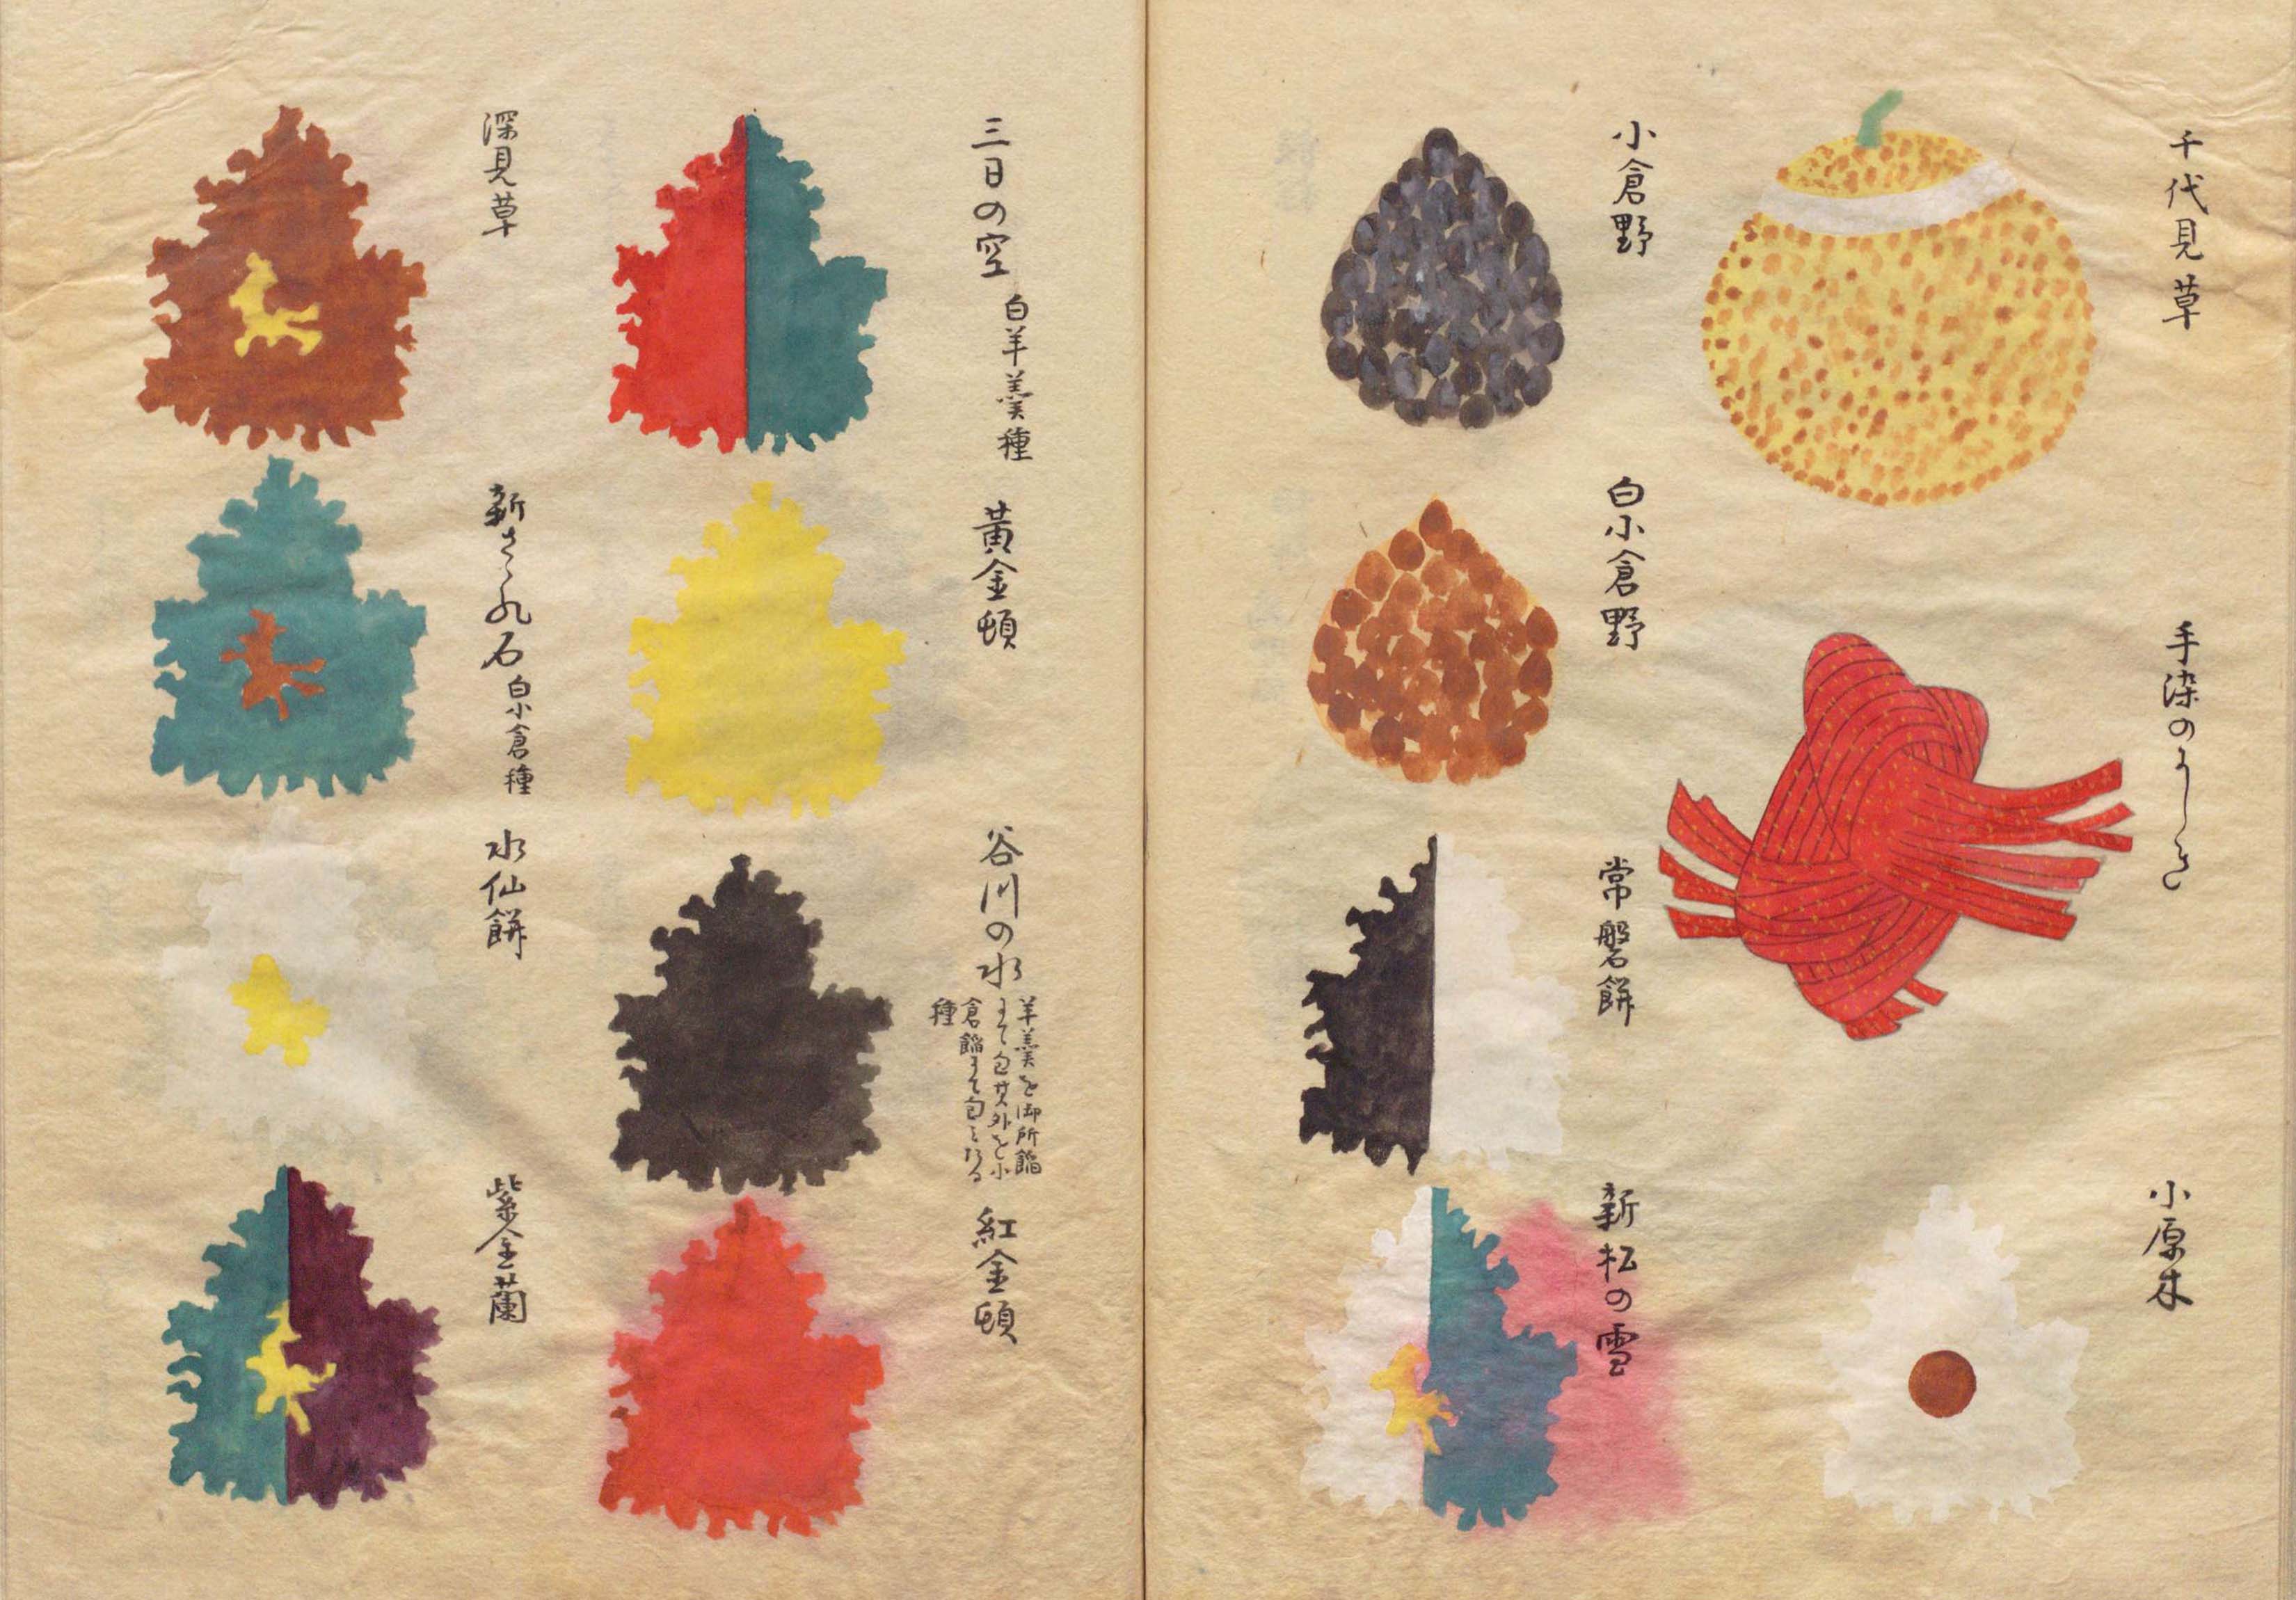 千代見草
手染のにしき
小原木
小倉野
白小倉野
常磐餅
新松の雪
三日の空
白羊羹種
黄金頓
谷川の水
羊羹を御所餡
にて包其外を小
倉餡にて包ミたる
種
紅金頓
深見草
新さゝれ石
白小倉種
水仙餅
紫金蘭